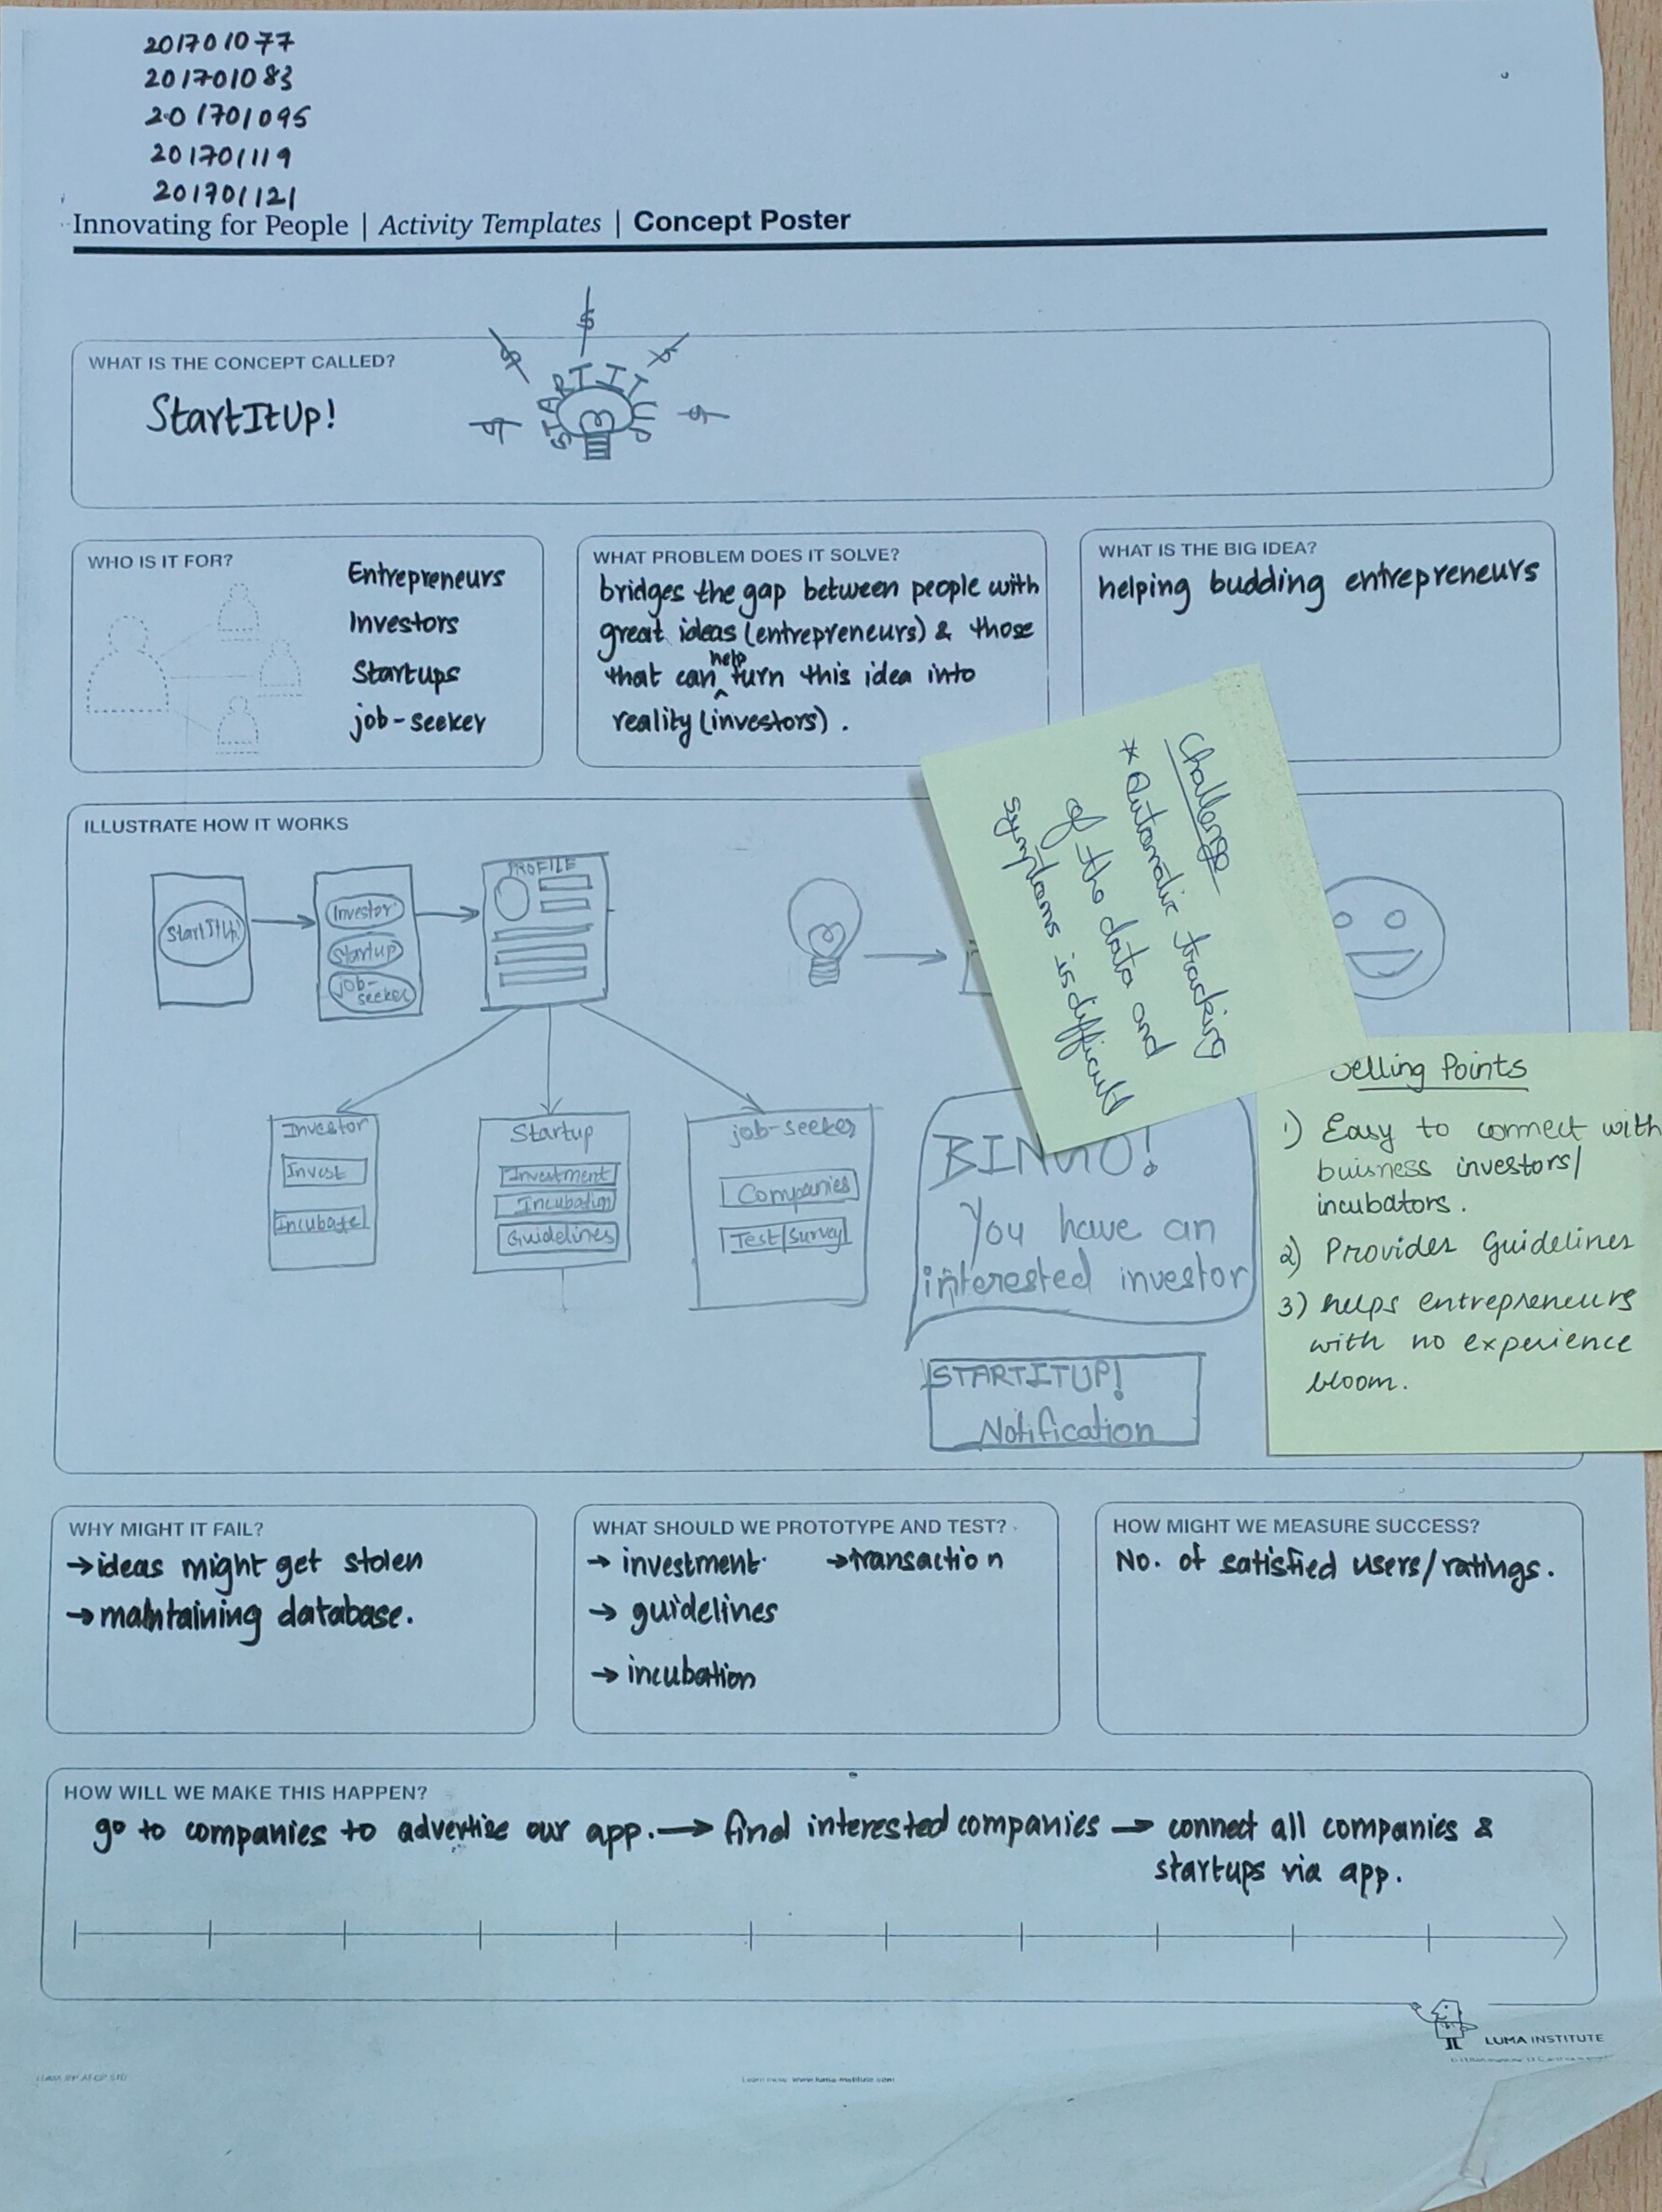 201701077
201701083
201701095
201701119
201701121
Innovating for People | Activity Templates | Concept Poster
WHAT IS THE CONCEPT CALLED?
StartItUp!
START IT UP
$ $ $ $ $
WHO IS IT FOR?
Entrepreneurs
Investors
Startups
job-seeker
WHAT PROBLEM DOES IT SOLVE?
bridges the gap between people with
great ideas (entrepreneurs) & those
that can help turn this idea into
reality (investors).
WHAT IS THE BIG IDEA?
helping budding entrepreneurs
Challenge
* Automatic tracking
of the data and
symptoms is difficult
ILLUSTRATE HOW IT WORKS
StartItUp!
Investor
Startup
job-
seeker
PROFILE
Investor
Invest
Incubate
Startup
Investment
Incubation
Guidelines
job-seeker
Companies
Test/survey
BINGO!
You have an
interested investor
STARTITUP!
Notification
Selling Points
1) Easy to connect with
buisness investors/
incubators.
2) Provides Guidelines
3) helps entrepreneurs
with no experience
bloom.
WHY MIGHT IT FAIL?
→ ideas might get stolen
→ maintaining database.
WHAT SHOULD WE PROTOTYPE AND TEST?
→ investment → transaction
→ guidelines
→ incubation
HOW MIGHT WE MEASURE SUCCESS?
No. of satisfied users/ratings.
HOW WILL WE MAKE THIS HAPPEN?
go to companies to advertise our app. → find interested companies → connect all companies &
startups via app.
LUMA INSTITUTE
Learn more: www.luma-institute.com